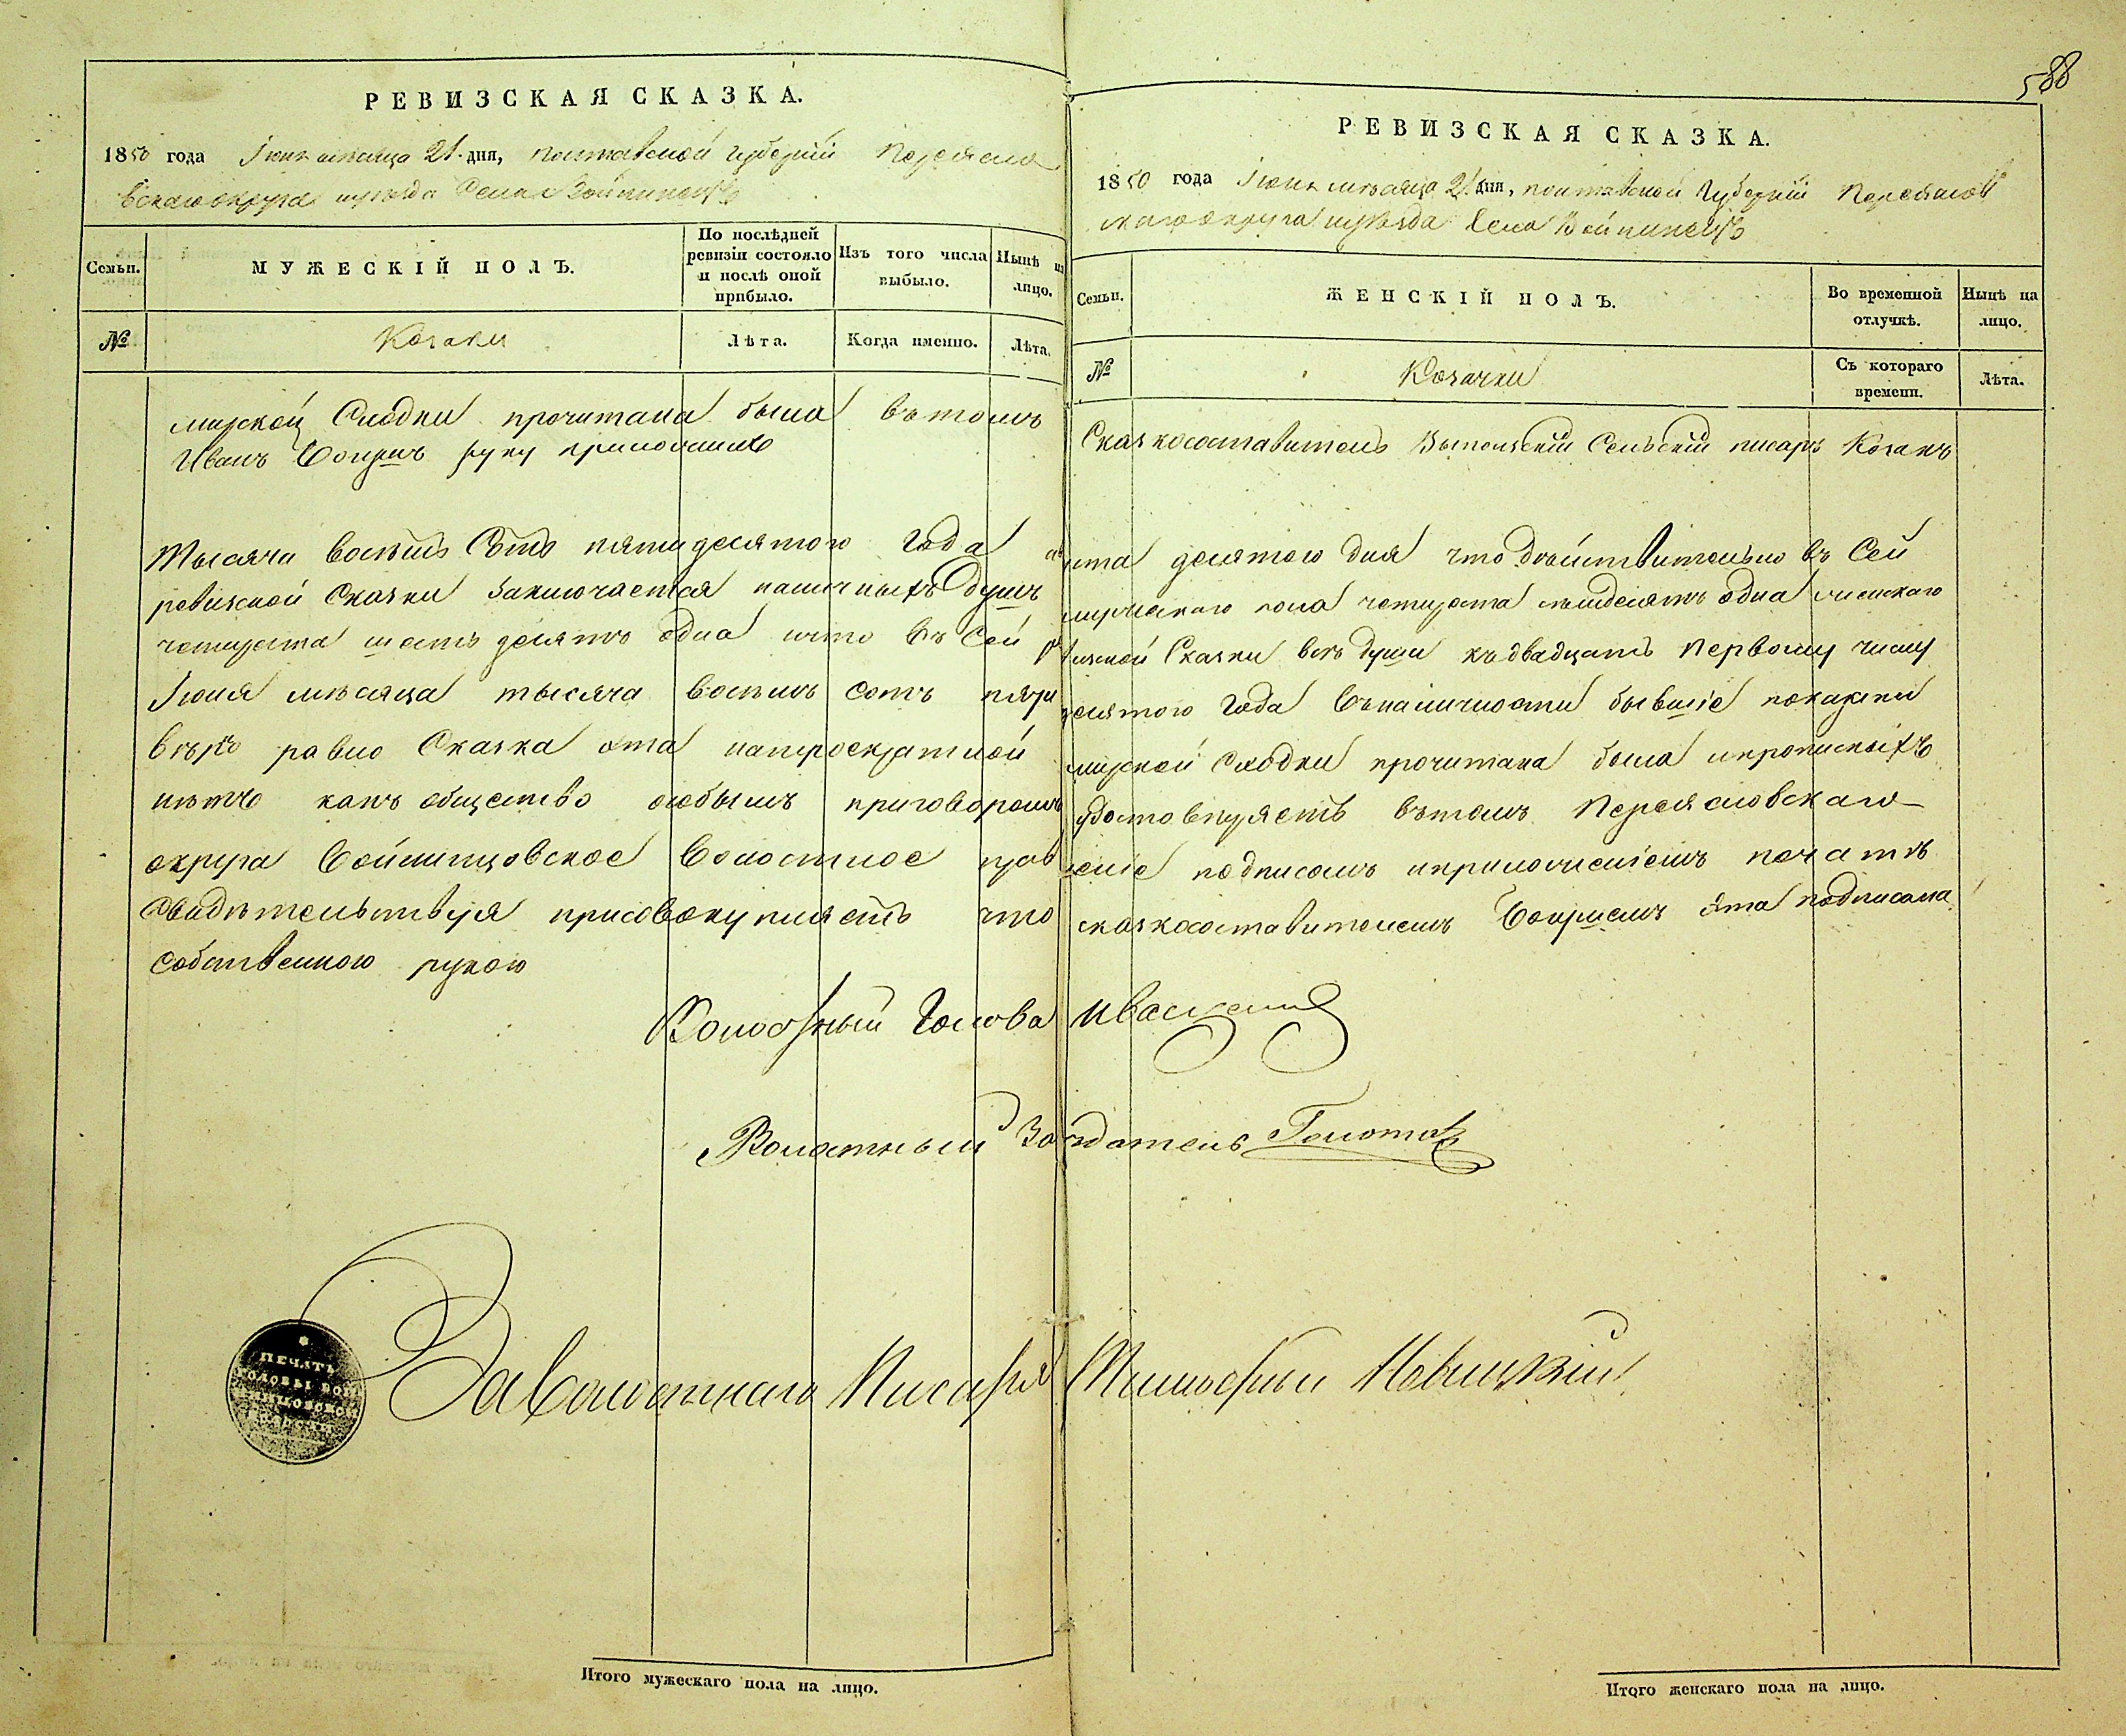 588
РЕВИЗСКАЯ СКАЗКА.
1850 года Іюня мѣсяца 21 дня, Полтавской Губерніи Переясла
вскаго округа и уѣзда Села Войтинецъ
Семьи.
МУЖЕСКІЙ ПОЛЪ.
По послѣдней ревизіи состояло и послѣ оной прибыло.
Изъ того числа выбыло.
Нынѣ на лицо.
№
Козаки
Лѣта.
Когда именно.
Лѣта.
РЕВИЗСКАЯ СКАЗКА.
1850 года Іюня мѣсяца 21 дня, Полтавской Губерніи Переяслов
скаго округа и уѣзда Села Войтинецъ
Семьи.
ЖЕНСКІЙ ПОЛЪ.
Во временной отлучкѣ.
Нынѣ на лицо.
№
Козачки
Съ котораго времени.
Лѣта.
мирской Сходки прочитана была въ томъ Сказкосоставитель Сельскій писарь Козакъ
Иванъ руку приложилъ
Тысяча восемь Сотъ пятидесятого Года десятого дня что дѣйствительно въ Сей
ревизской Сказки заключается наличныхъ Душъ мужескаго пола четыреста одна женскаго
четыреста шесть десятъ одна и что въ Сей ревизской Сказки всѣ души къ двадцать Первому числу
Іюня мѣсяца тысяча восемь сотъ пяти десятого Года въ наличности бывшіе показаны
въ равно Сказка эта мирской Сходки прочитана была и прописныхъ
нѣтъ какъ общество особымъ приговоромъ удостовѣряетъ въ томъ Переясловскаго
округа Волостное правленіе подписомъ и приложеніемъ печати
Свидѣтельствуя присовокупляетъ что сказкосоставителемъ эта подписана
собственною рукою
Волостный Голова
Волостный Засѣдатель
За Волостнаго Писаря Новицкій
ПЕЧАТЬ
ГОЛОВЫ
Итого мужескаго пола на лицо.
Итого женскаго пола на лицо.